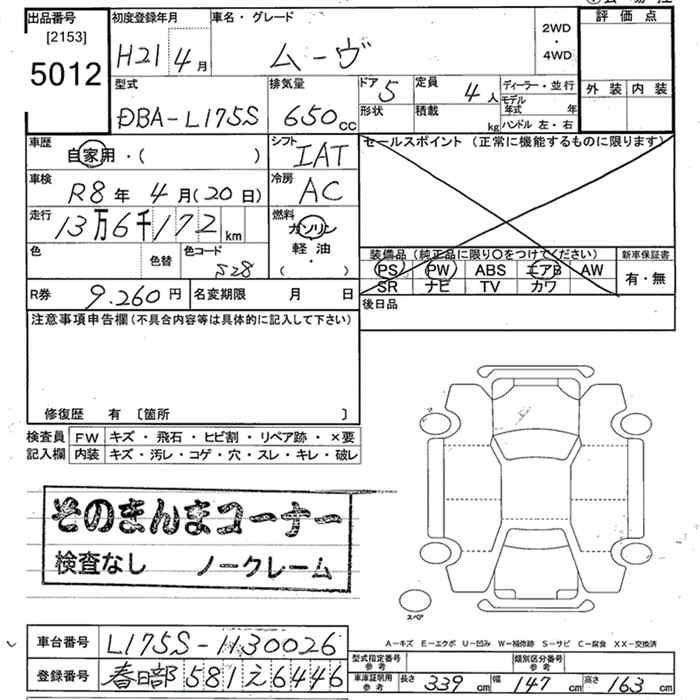 出品番号
[2153]
5012
初度登録年月
H21 4月
車名・グレード
ムーヴ
2WD
・
4WD
評価点
外装 内装
型式
DBA-L175S
排気量
650cc
ドア 5
形状
定員 4人
積載 kg
ディーラー・並行
モデル年式 年
ハンドル 左・右
車歴
自家用・( )
シフト
IAT
セールスポイント (正常に機能するものに限ります)
車検
R8年 4月(20日)
冷房
AC
走行
13万6千172km
燃料
ガソリン
軽油
・
( )
色
色替
色コード
S28
装備品 (純正品に限り〇をつけてください)
PS PW ABS エアB AW
SR ナビ TV カワ
新車保証書
有・無
R券 9.260円
名変期限 月 日
後日品
注意事項申告欄(不具合内容等は具体的に記入して下さい)
修復歴 有 [箇所 ]
検査員 FW キズ・飛石・ヒビ割・リペア跡・×要
記入欄 内装 キズ・汚レ・コゲ・穴・スレ・キレ・破レ
そのまんまコーナー
検査なし ノークレーム
スペア
A-キズ E-エクボ U-凹み W-補修跡 S-サビ C-腐食 XX-交換済
車台番号 L175S-1130026
登録番号 春日部581え6446
型式指定番号
参考
類別区分番号
参考
車庫証明用
参考
長さ 339cm 幅 147cm 高さ 163cm